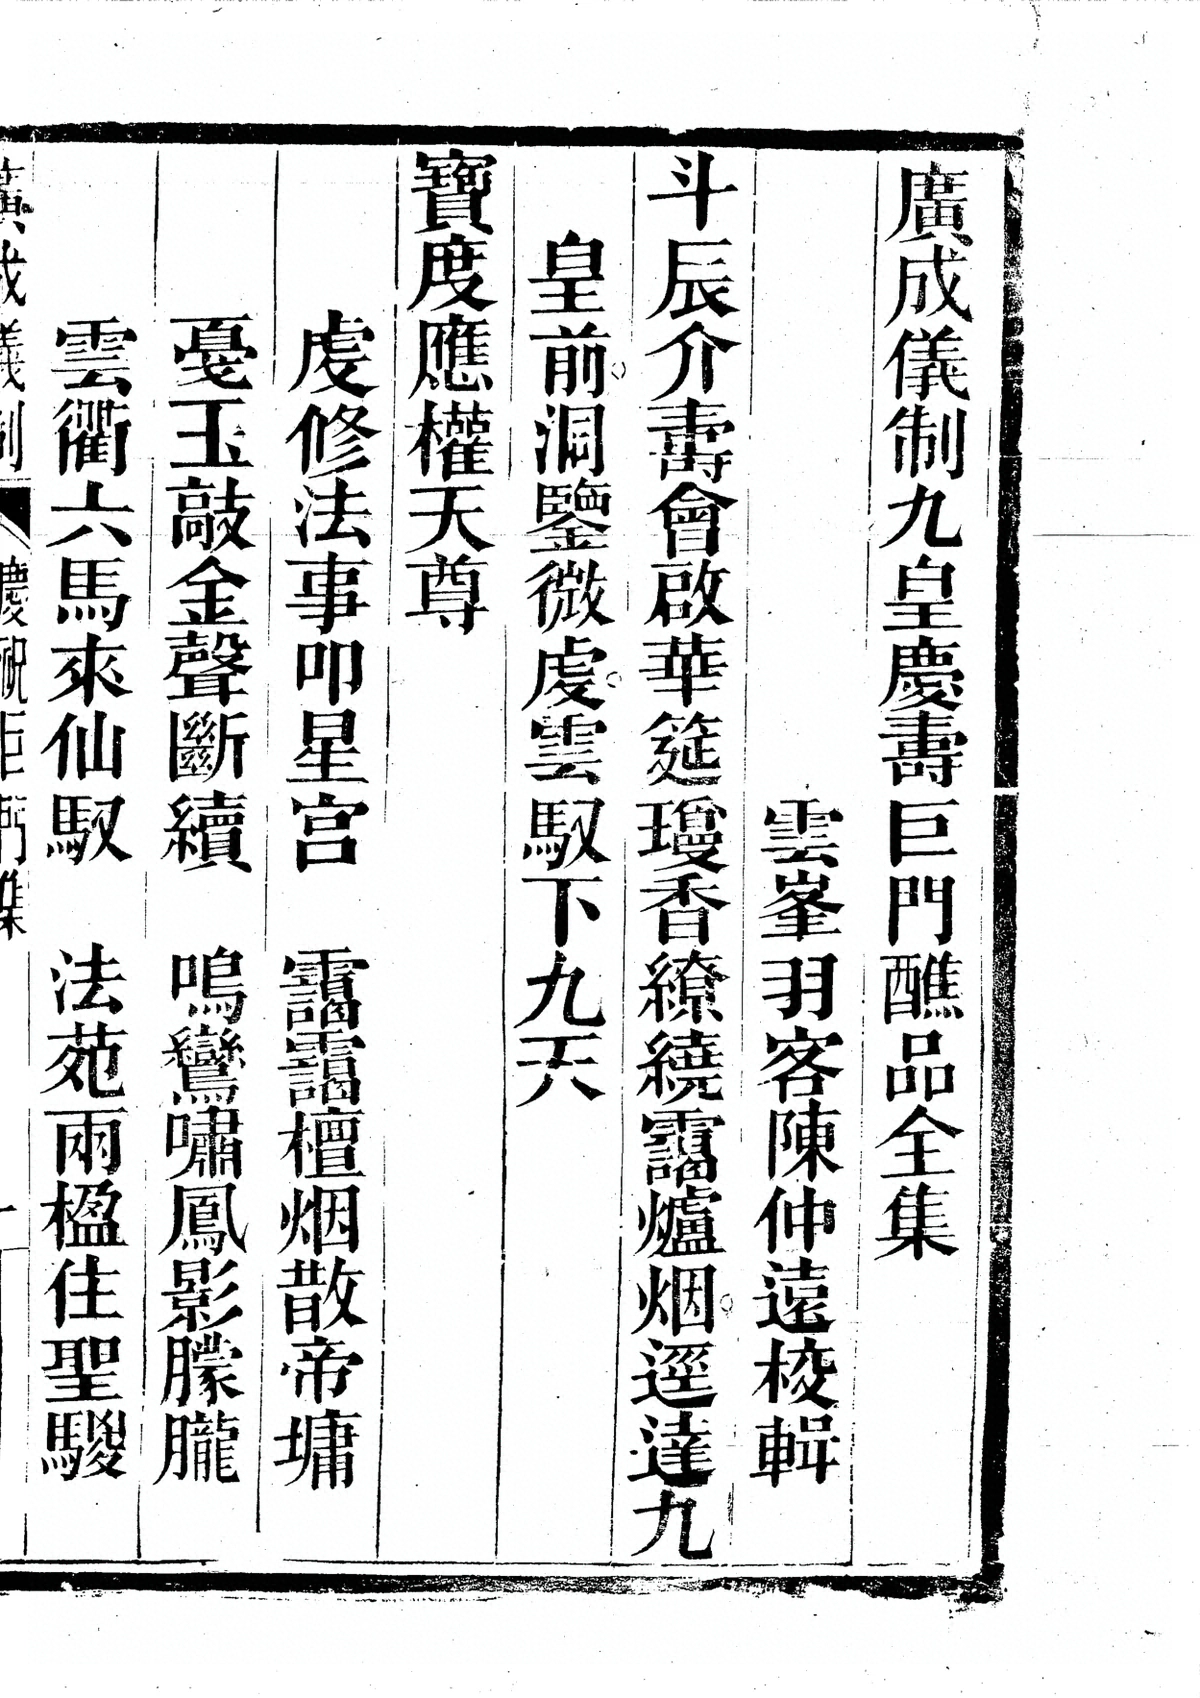 廣成儀制九皇慶壽巨門醮品全集
雲峯羽客陳仲遠校輯
斗辰介壽會啟華筵瓊香繚繞靄爐烟逕達九
皇前洞鑒微虔雲馭下九天
寶度應權天尊
虔修法事叩星宮　靄靄檀烟散帝墉
戛玉敲金聲斷續　鳴鸞嘯鳳影朦朧
雲衢六馬來仙馭　法苑兩楹住聖騣
廣成儀制　慶祝巨門集